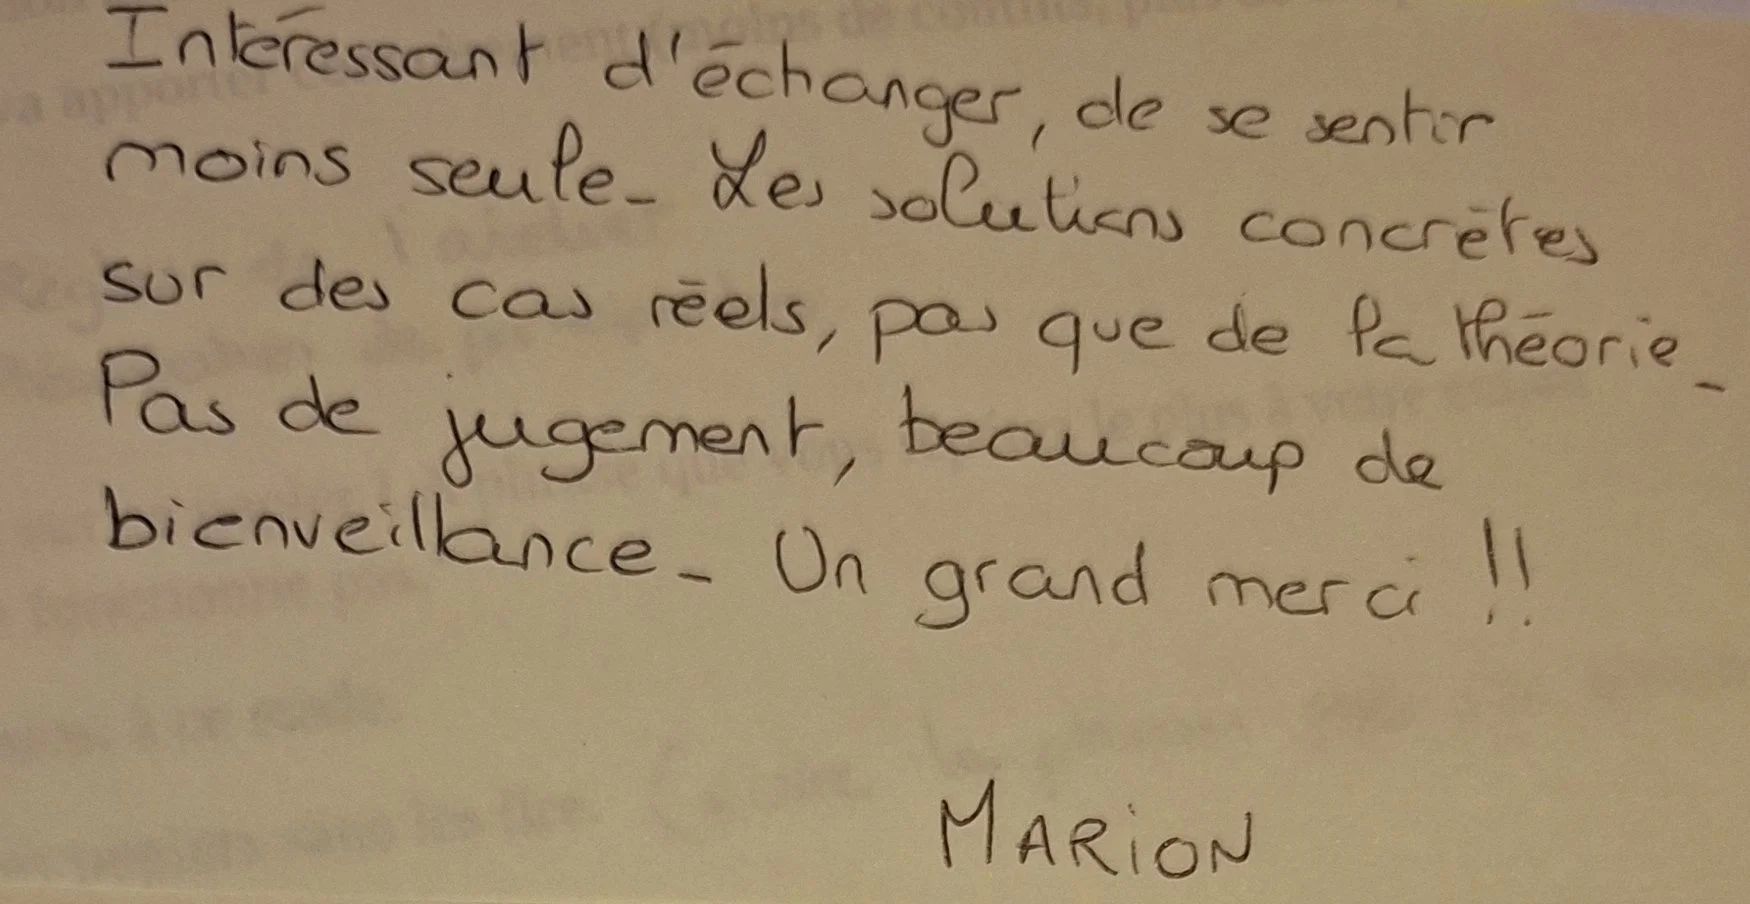 Intéressant d'échanger, de se sentir
moins seule. Les solutions concrètes
sur des cas réels, pas que de la théorie.
Pas de jugement, beaucoup de
bienveillance. Un grand merci !!
MARiON